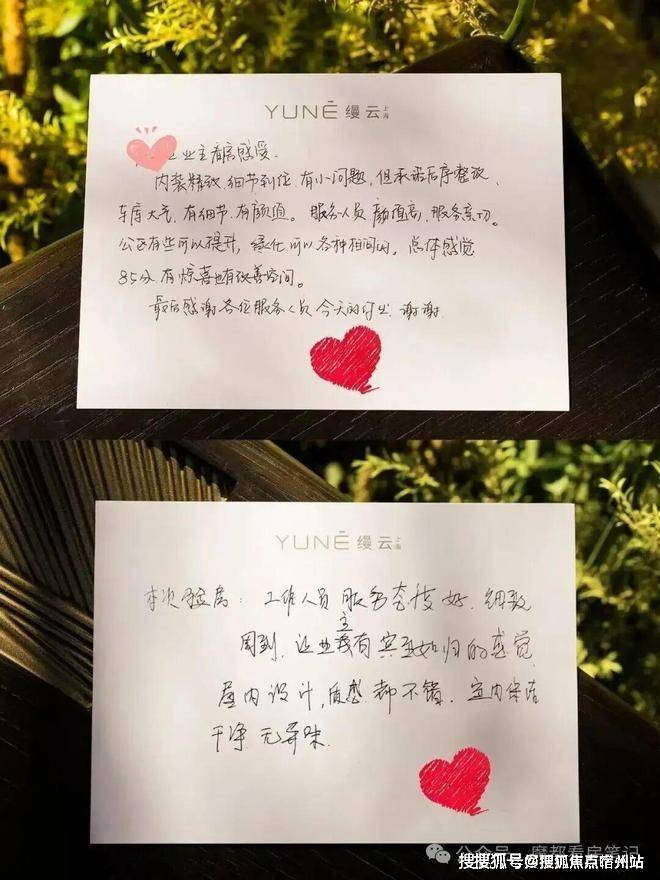 YUNĒ 缦云 上海
业主看房感受.
内装精致、细节到位、有小问题, 但承诺后序整改、
车库大气、有细节、有颜值。服务人员颜值高, 服务亲切。
公区有些可以提升, 绿化可以各种相间, 总体感觉
85分有惊喜也有改善空间。
最后感谢各位服务人员今天的付出 谢谢
YUNĒ 缦云 上海
本次验房: 工作人员服务态度好. 细致
周到. 让业主我有宾至如归的感觉
屋内设计, 质感都不错. 室内保洁
干净 无异味.
公众号 · 魔都看房笔记
搜搜狐号@搜狐焦点宿州站